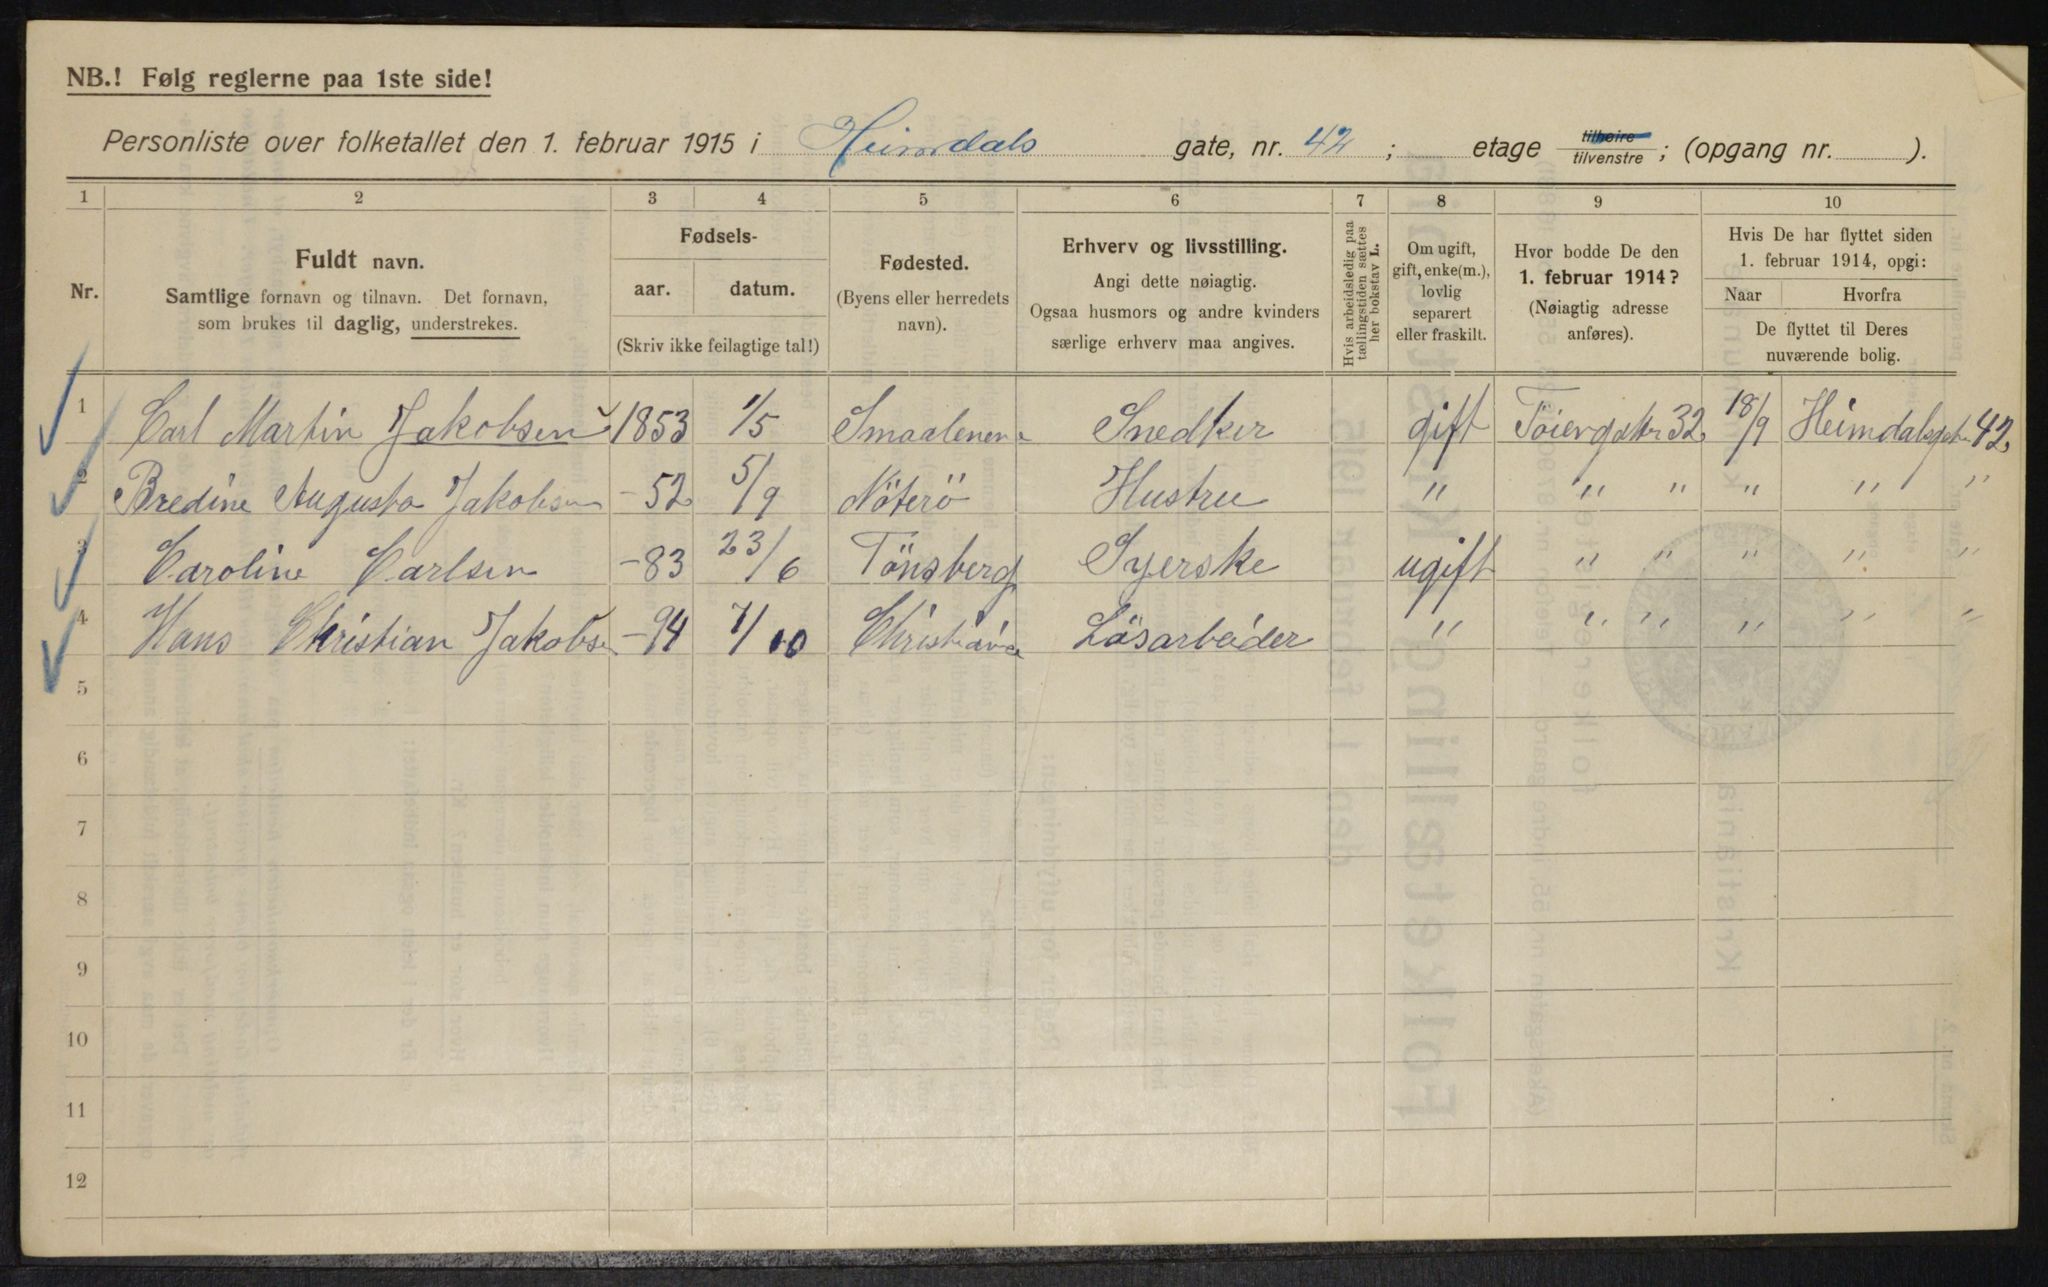 NB.! Følg reglerne paa 1ste side!
Personliste over folketallet den 1. februar 1915 i Heimdals gate, nr. 42 ; etage tilhøire tilvenstre ; (opgang nr. ).
1 2 3 4 5 6 7 8 9 10
Nr.
Fuldt navn.
Samtlige fornavn og tilnavn. Det fornavn,
som brukes til daglig, understrekes.
Fødsels-
aar. datum.
(Skriv ikke feilagtige tal!)
Fødested.
(Byens eller herredets
navn).
Erhverv og livsstilling.
Angi dette nøiagtig.
Ogsaa husmors og andre kvinders
særlige erhverv maa angives.
Hvis arbeidsledig paa
tællingstiden sættes
her bokstav L.
Om ugift,
gift, enke(m.),
lovlig
separert
eller fraskilt.
Hvor bodde De den
1. februar 1914?
(Nøiagtig adresse
anføres).
Hvis De har flyttet siden
1. februar 1914, opgi:
Naar Hvorfra
De flyttet til Deres
nuværende bolig.
1 Carl Martin Jakobsen 1853 1/5 Smaalenene Snedker gift Töiengatn 32 18/9 Heimdalsgatn 42
2 Bredine Augusta Jakobsen -52 5/9 Nöterö Hustru " " " " " "
3 Caroline Carlsen -83 23/6 Tönsberg Syerske ugift " " " " "
4 Hans Christian Jakobsen -94 7/10 Christiania Lösarbeider " " " " " "
5
6
7
8
9
10
11
12